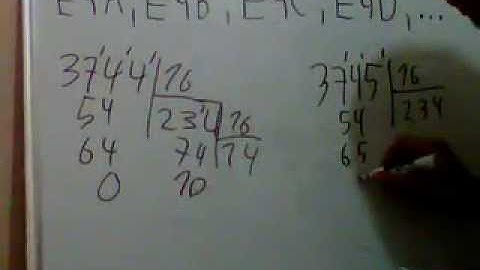 E9A, E9B, E9C, E9D, ...
3744 16 3745 16
54 234 16 54 234
64 74 14 65
0 10